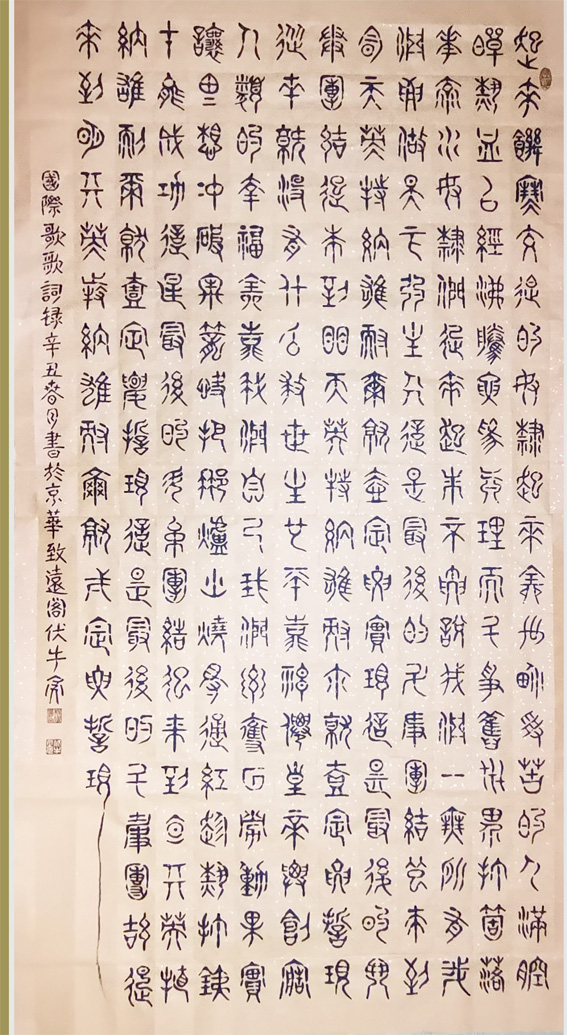 起來饑寒交迫的奴隸起來全世界受苦的人滿腔
的熱血已經沸騰要為真理而鬥爭舊世界打個落
花流水奴隸們起來起來不要說我們一無所有我
們要做天下的主人這是最後的鬥爭團結起來到
明天英特納雄耐爾就一定要實現這是最後的鬥
爭團結起來到明天英特納雄耐爾就一定要實現
從來就沒有什么救世主也不靠神仙皇帝要創造
人類的幸福全靠我們自己我們要奪回勞動果實
讓思想沖破牢籠快把那爐火燒得通紅趁熱打鐵
才能成功這是最後的鬥爭團結起來到明天英特
納雄耐爾就一定要實現這是最後的鬥爭團結起
來到明天英特納雄耐爾就一定要實現
國際歌歌詞録辛丑春月書於京華致遠閣伏牛